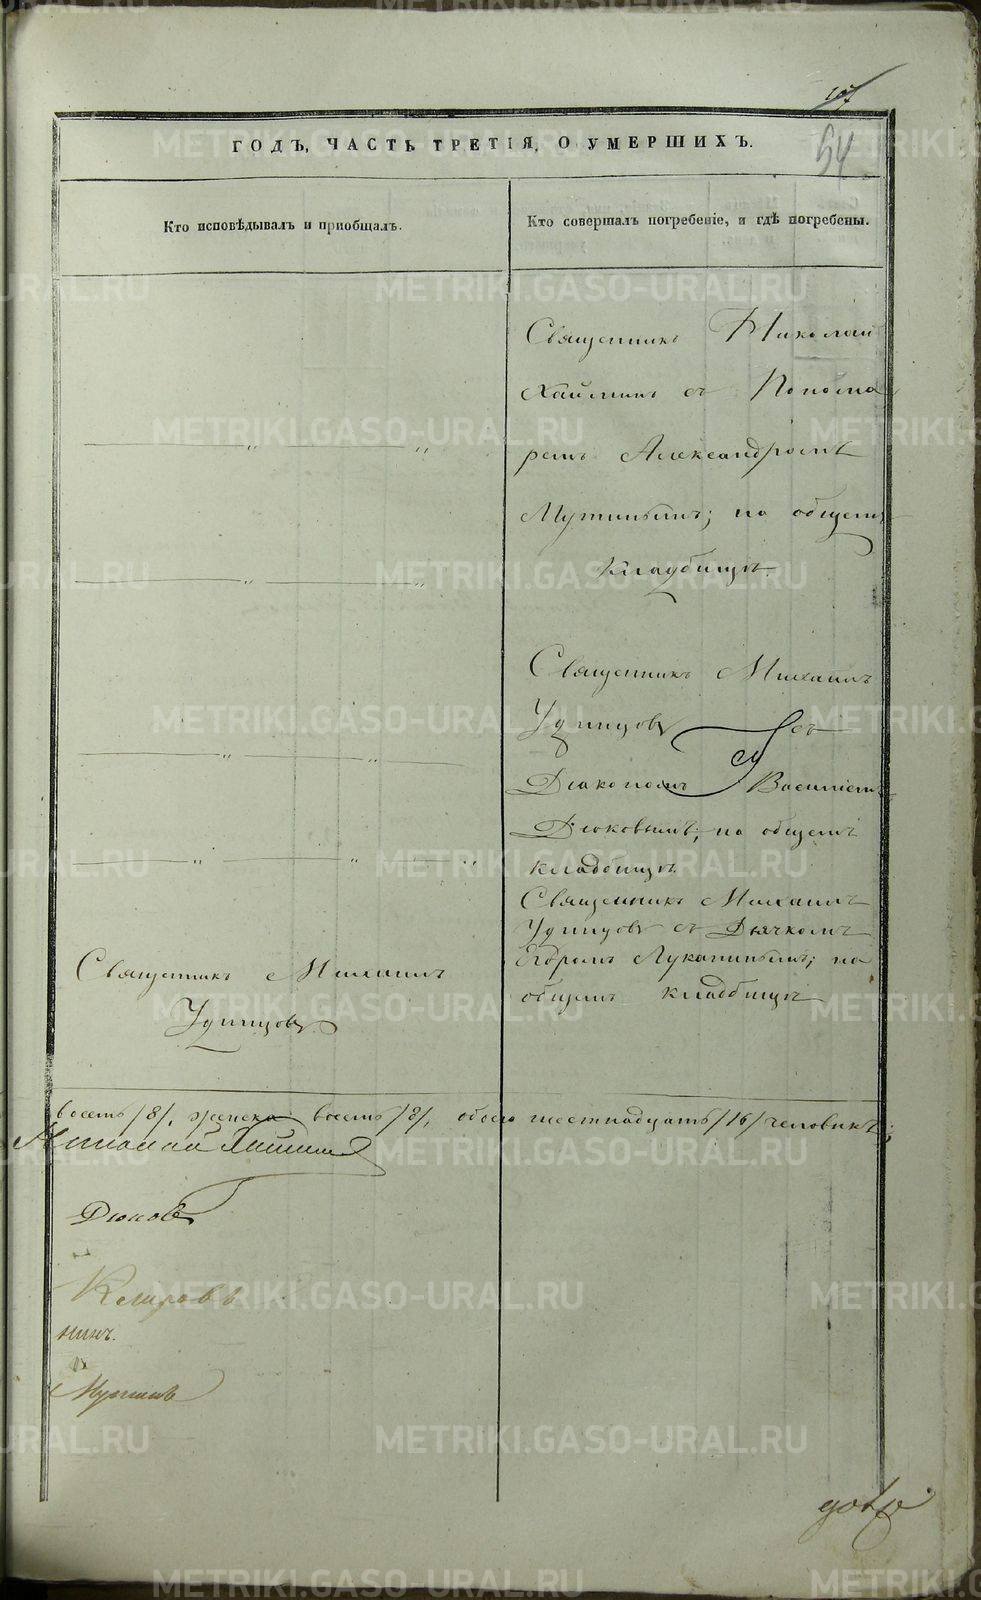 107
54
ГОДЪ, ЧАСТЬ ТРЕТІЯ, О УМЕРШИХЪ.
Кто исповѣдывалъ и пріобщалъ.
Кто совершалъ погребеніе, и гдѣ погребены.
Священникъ Николай
Хайминъ съ Понома
ремъ Александромъ
Мутинымъ; на общемъ
кладбищѣ.
Священникъ Михаилъ
Удинцовъ съ
Діакономъ Василіемъ
Дюковымъ; на общемъ
кладбищѣ.
Священникъ Михаилъ
Удинцовъ съ Дьячкомъ
Егоромъ Луканинымъ; на
общемъ кладбищѣ
Священникъ Михаилъ
Удинцовъ
восемь /8/, женска восемь /8/, обоего шестнадцать /16/ человѣкъ;
Николай Хайминъ
Дюковъ
нинъ.
Мутинъ
METRIKI.GASO-URAL.RU